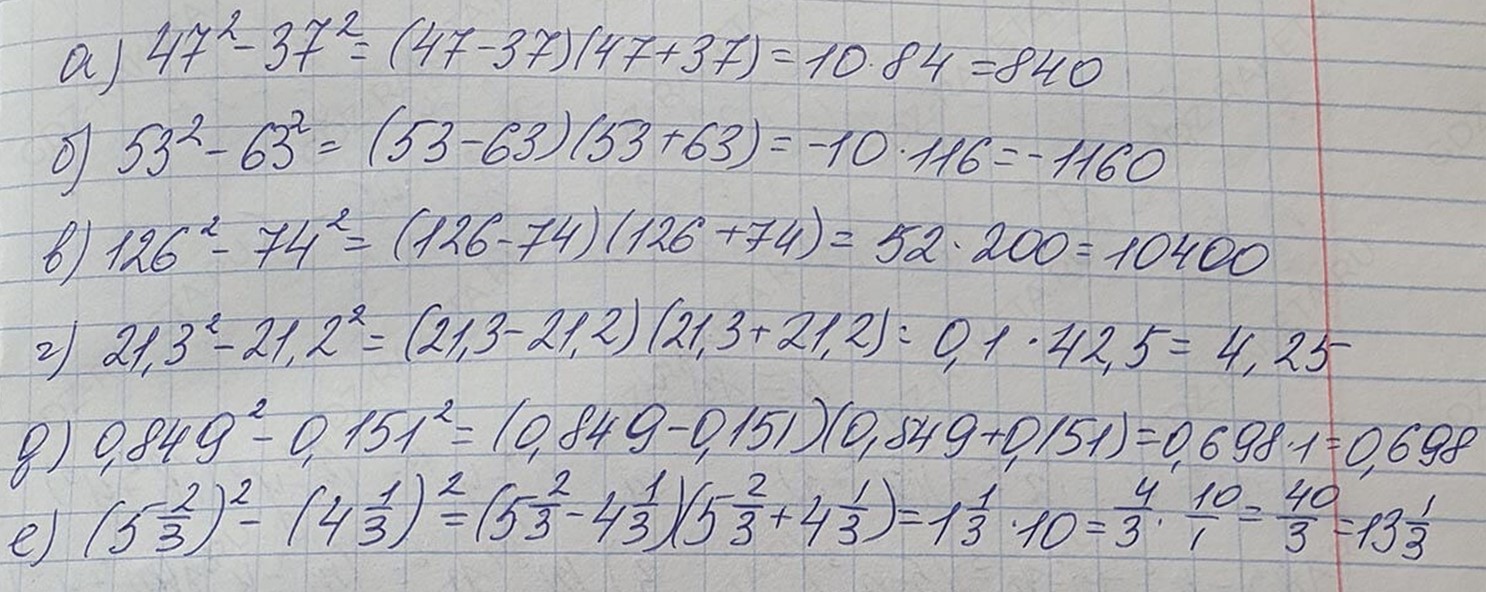 а) 47² - 37² = (47-37)(47+37) = 10·84 = 840
б) 53² - 63² = (53-63)(53+63) = -10·116 = -1160
в) 126² - 74² = (126-74)(126+74) = 52·200 = 10400
г) 21,3² - 21,2² = (21,3-21,2)(21,3+21,2) = 0,1·42,5 = 4,25
д) 0,849² - 0,151² = (0,849-0,151)(0,849+0,151) = 0,698·1 = 0,698
е) (5 2/3)² - (4 1/3)² = (5 2/3 - 4 1/3)(5 2/3 + 4 1/3) = 1 1/3 · 10 = 4/3 · 10/1 = 40/3 = 13 1/3